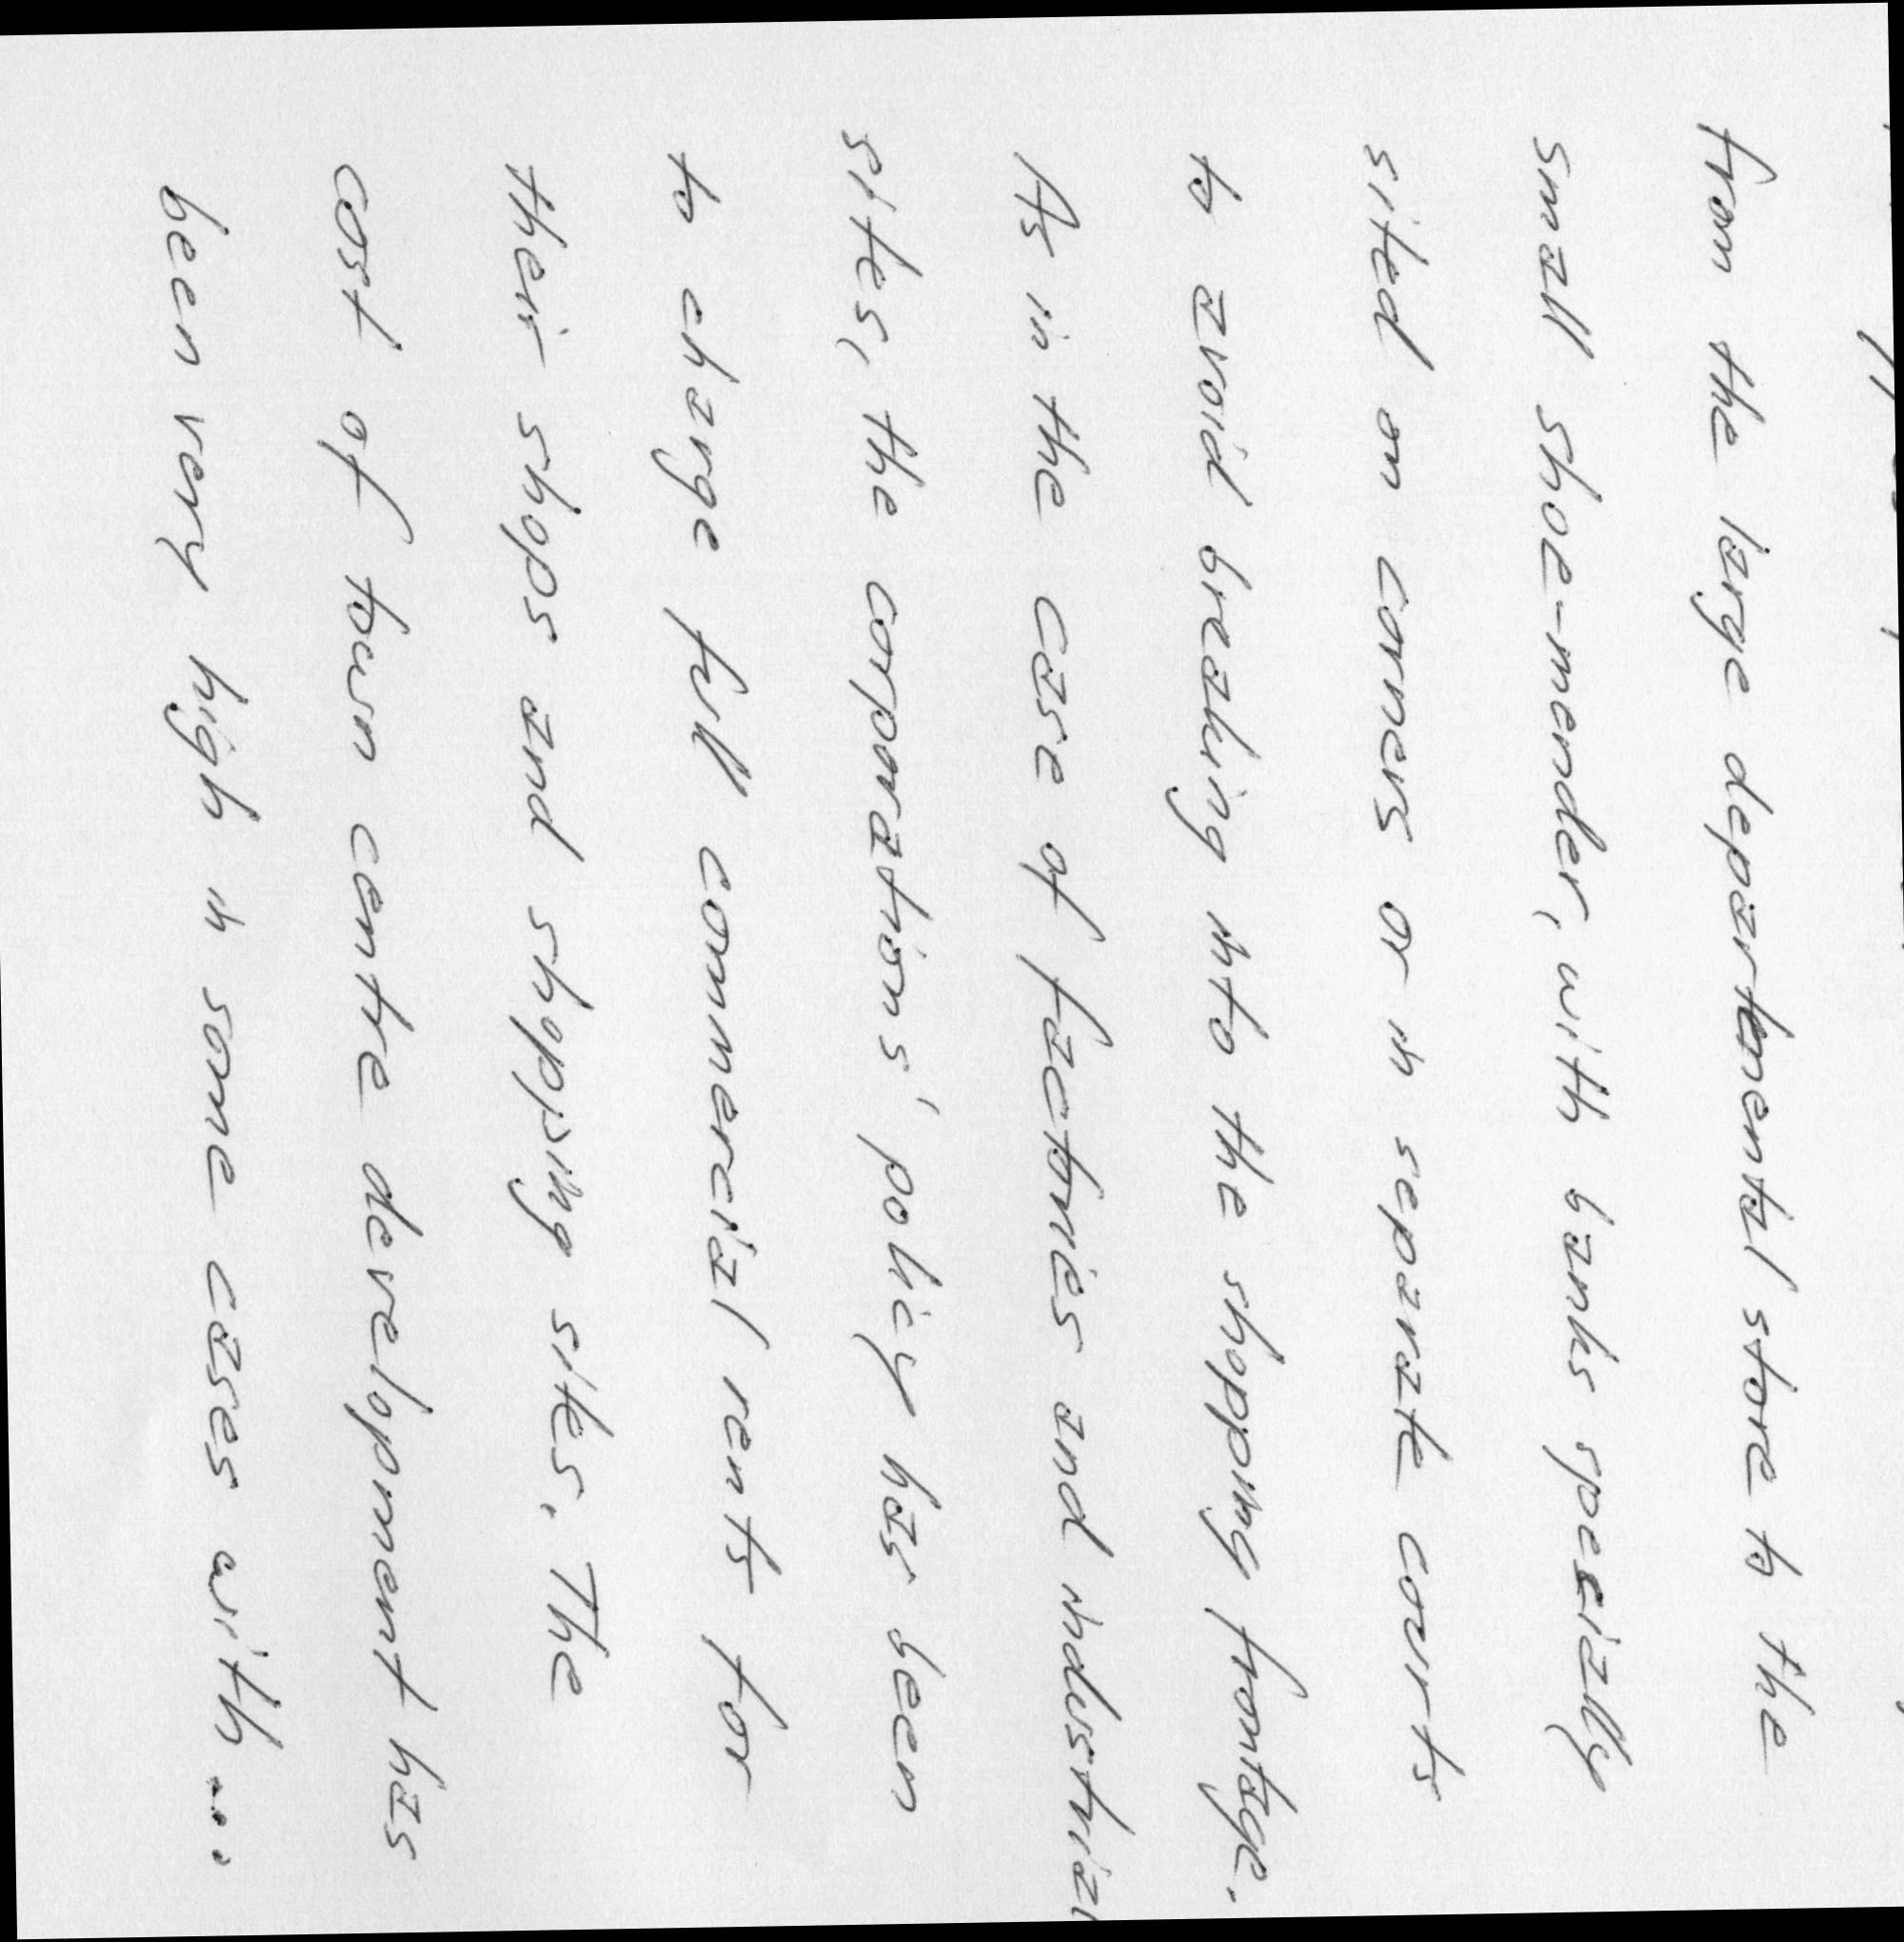 from the large departmental store to the
small shoe-mender, with banks specially
sited on corners or in separate courts
to avoid breaking into the shopping frontage.
As in the case of factories and industrial
sites, the corporations' policy has been
to charge full commercial rents for
their shops and shopping sites. The
cost of town centre development has
been very high in some cases with....